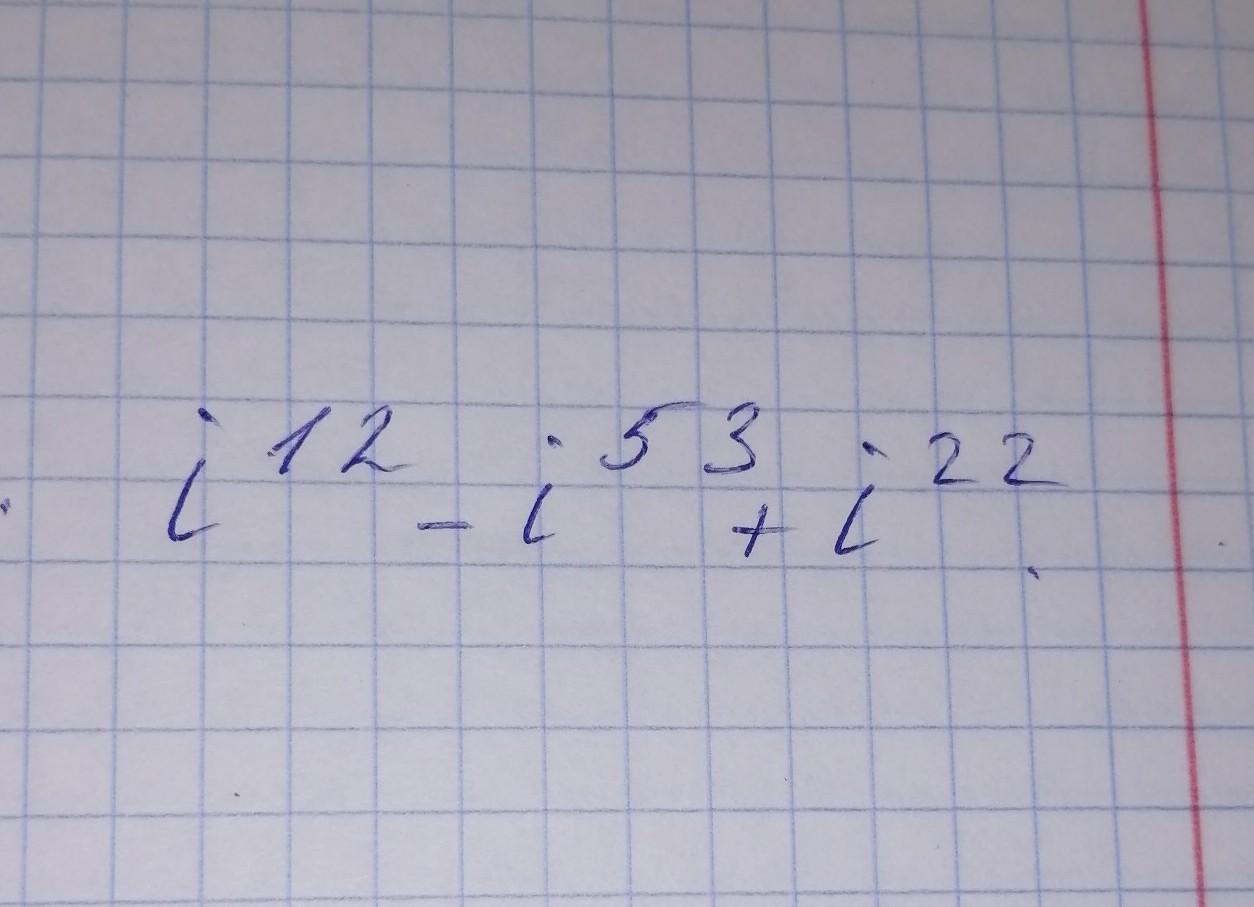 i¹² - i⁵³ + i²²